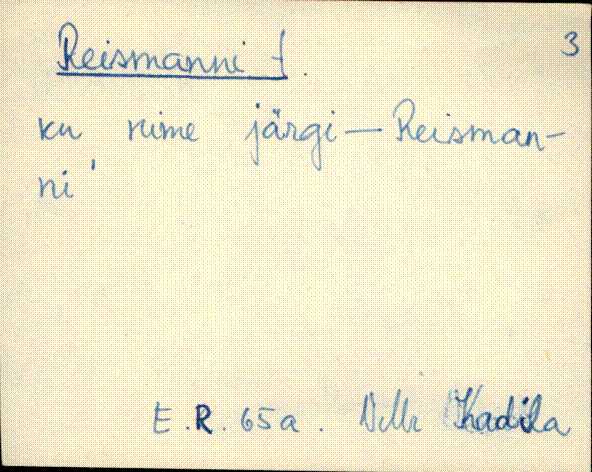 Reismanni t. 3
ku nime järgi — Reisman-
ni'
E.R. 65a. Kadila